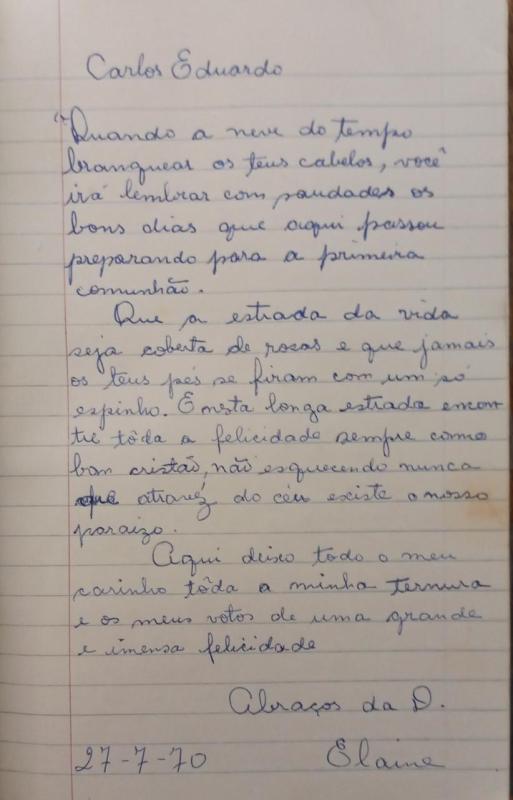 Carlos Eduardo
"Quando a neve do tempo
branquear os teus cabelos, você
irá lembrar com saudades os
bons dias que aqui passou
preparando para a primeira
comunhão.
Que a estrada da vida
seja coberta de rozas e que jamais
os teus pés se firam com um só
espinho. E nesta longa estrada encon
tre tôda a felicidade sempre como
bom cristão, não esquecendo nunca
que atravez do céu existe o nosso
paraizo.
Aqui deixo todo o meu
carinho tôda a minha ternura
e os meus votos de uma grande
e imensa felicidade
Abraços da D.
27-7-70 Elaine